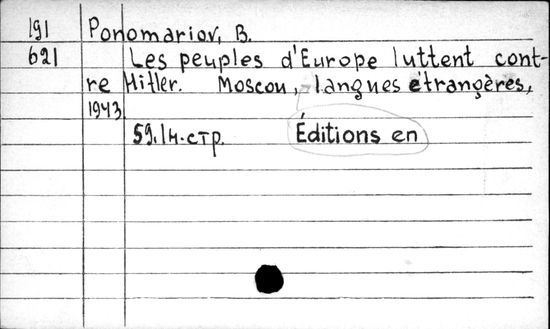 191 Ponomariov, B.
621 Les peuples d'Europe luttent cont-
re Hitler. Moscou, langues étrangères,
1943
59.1н.стр. Éditions en